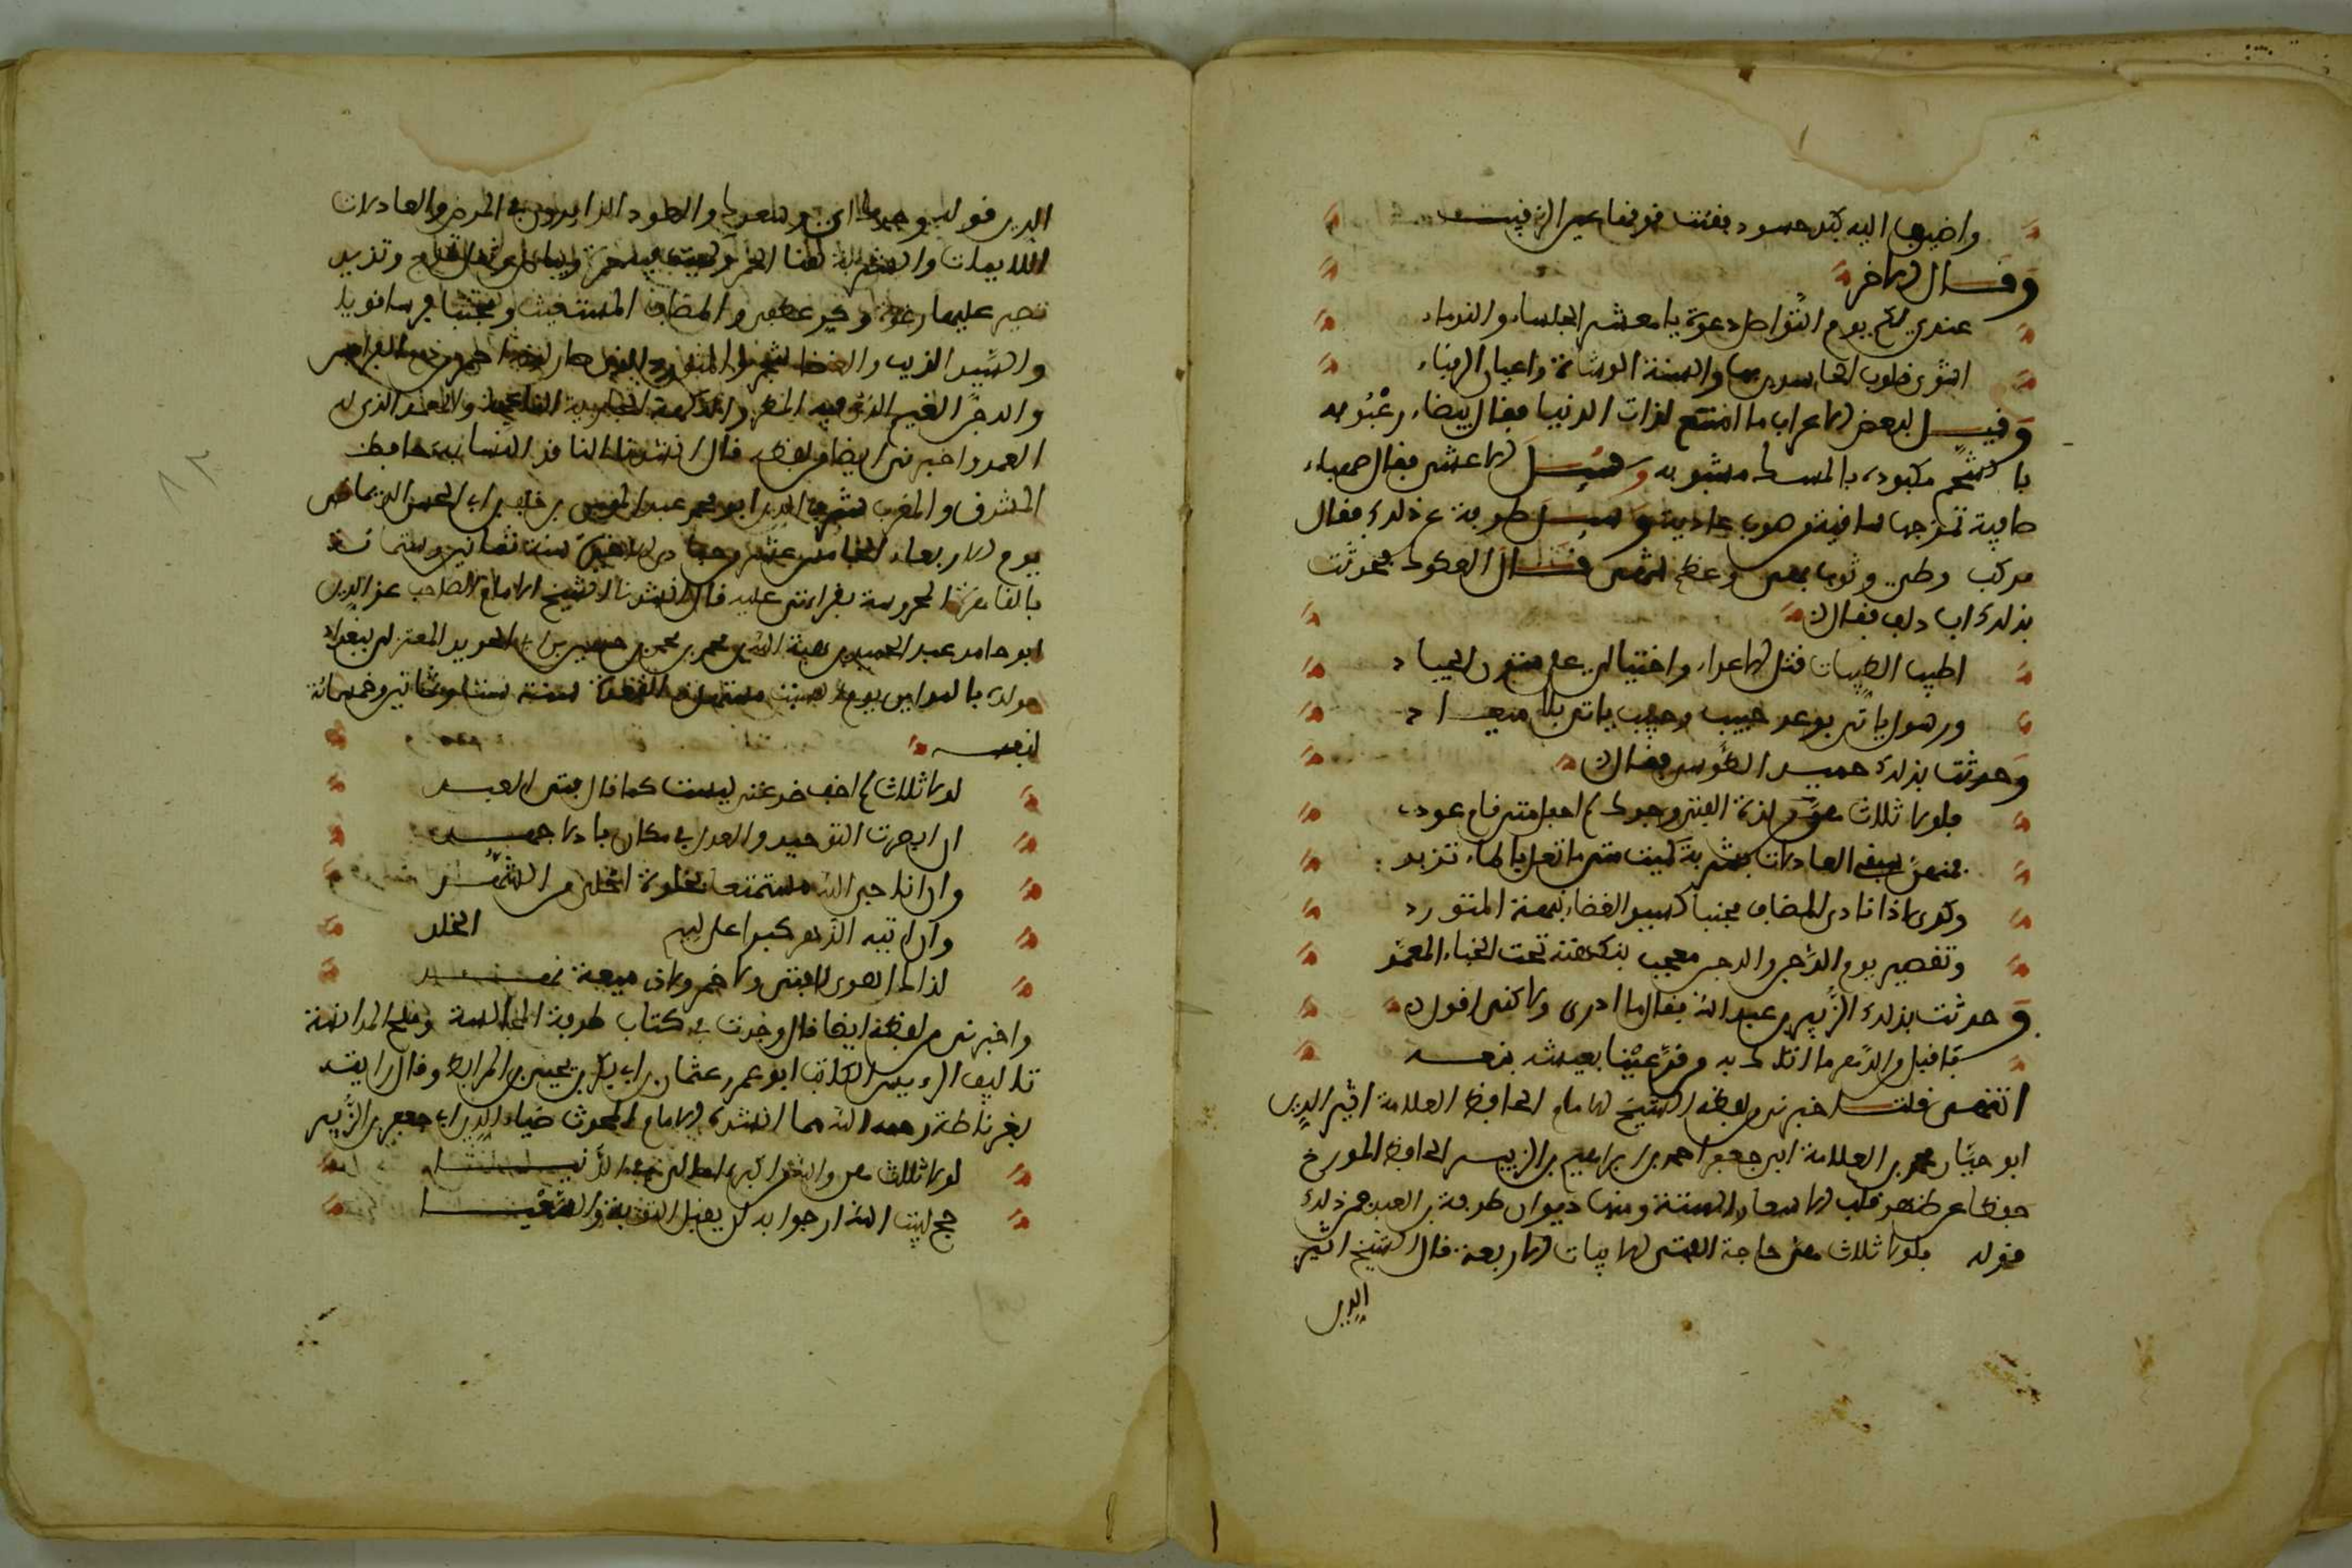 واضيف اليه كيد حسود بقيت موقفا عين الرقيب
وقال الاخر
عندي لكم يوم التواصل دعوة يا معشر الجلساء والندماء
اشوي قلوب الحاسدين بها والسنة الوشاة واعين الرقباء
وقيل لبعض الاعراب ما امتع لذات الدنيا فقال بيضاء رعبوبه
بالشحم مكبوده بالمسك مشبوبه وسئل الاعشى فقال صهباء
صافية تمزجها ساقية من صوب غادية وسئل طرفة عن ذلك فقال
مركب وطي وثوب بهي ومطعم شهي قال العكوك فحدثت
بذلك ابا دلف فقال
اطيب الطيبات قتل الاعداء واختيالي على متون الجياد
ورسول ياتي بوعد حبيب وحبيب ياتي بلا ميعاد
وحدثت بذلك حميد الطوسي فقال
فلولا ثلاث هن من لذة الفتى وجدك لم احفل متى قام عودي
فمنهن سبقي العاذلات بشربة كميت متى ما تعل بالماء تزبد
وكري اذا نادى المضاف مجنبا كسيد الغضا نبهته المتورد
وتقصير يوم الدجن والدجن معجب ببهكنة تحت الخباء المعمد
وحدثت بذلك الزبير بن عبد الله فقال ما ادري ولكني اقول
فاقبل من الدهر ما اتاك به من قر عينا بعيشه نفعه
انتهى قلت اخبرني من لفظه الشيخ الامام الحافظ العلامة اثير الدين
ابو حيان محمد بن العلامة ابي جعفر احمد بن ابراهيم بن الزبير الحافظ المورخ
حفظا عن ظهر قلب الاشعار الستة ومنها ديوان طرفة بن العبد فمن ذلك
قوله فلولا ثلاث هن حاجة الفتى الابيات الاربعة قال الشيخ اثير
الدين
الدين قوله وجدك اي وسعودك والعود الزايرون في المرض والعاذلات
اللايمات والشربة هنا الخمر وكميت
تصير عليها رغوة والمضاف المستغيث ومجنبا فرسا
والسيد الذيب والغضا شجر والمتورد
والدجن الغيم الذي فيه المطر والبهكنة الجارية الناعمة والمعمد الذي له
العمد واخبرني ايضا من لفظه قال انشدنا استاذنا النسابة حافظ
المشرق والمغرب شرف الدين ابو محمد عبد المومن بن خلف بن ابي الحسن الدمياطي
يوم الاربعاء الخامس عشر من جمادى الاخرة سنة ثمانين وستمائة
بالقاهرة المحروسة بقراءتي عليه قال انشدنا الشيخ الامام الصاحب عز الدين
ابو حامد عبد الحميد بن هبة الله بن محمد بن محمد بن حسين بن ابي الحديد المعتزلي ببغداد
مولده بالمداين يوم السبت مستهل ذي الحجة سنة ست وثمانين وخمسمائة
لنفسه
لولا ثلاث لم اخف صرعتي ليست كما قال فتى العبد
ان ابصرت التوحيد والعدل في مكان باذلا جهدي
وان اناجي الله مستمتعا بخلوة احلى من الشهد
وان اتيه الدهر كبرا على لئيم الخلد
لذاك اهوى لا فتى ولا خمر ولا ذي ميعة نهد
واخبرني من لفظه ايضا قال وجدت في كتاب طرفة المجالسة وملح المؤانسة
تاليف الرئيس الكاتب ابو عمر عثمان بن ابي بكر بن يحيى بن المرابط وقال رايته
بغرناطة رحمه الله مما انشده الامام المحدث ضياء الدين ابي جعفر بن الزبير
لولا ثلاث هن والله من اكبر امالي من الدنيا
حج لبيت الله ارجو به ان يقبل التوبة والسعيا